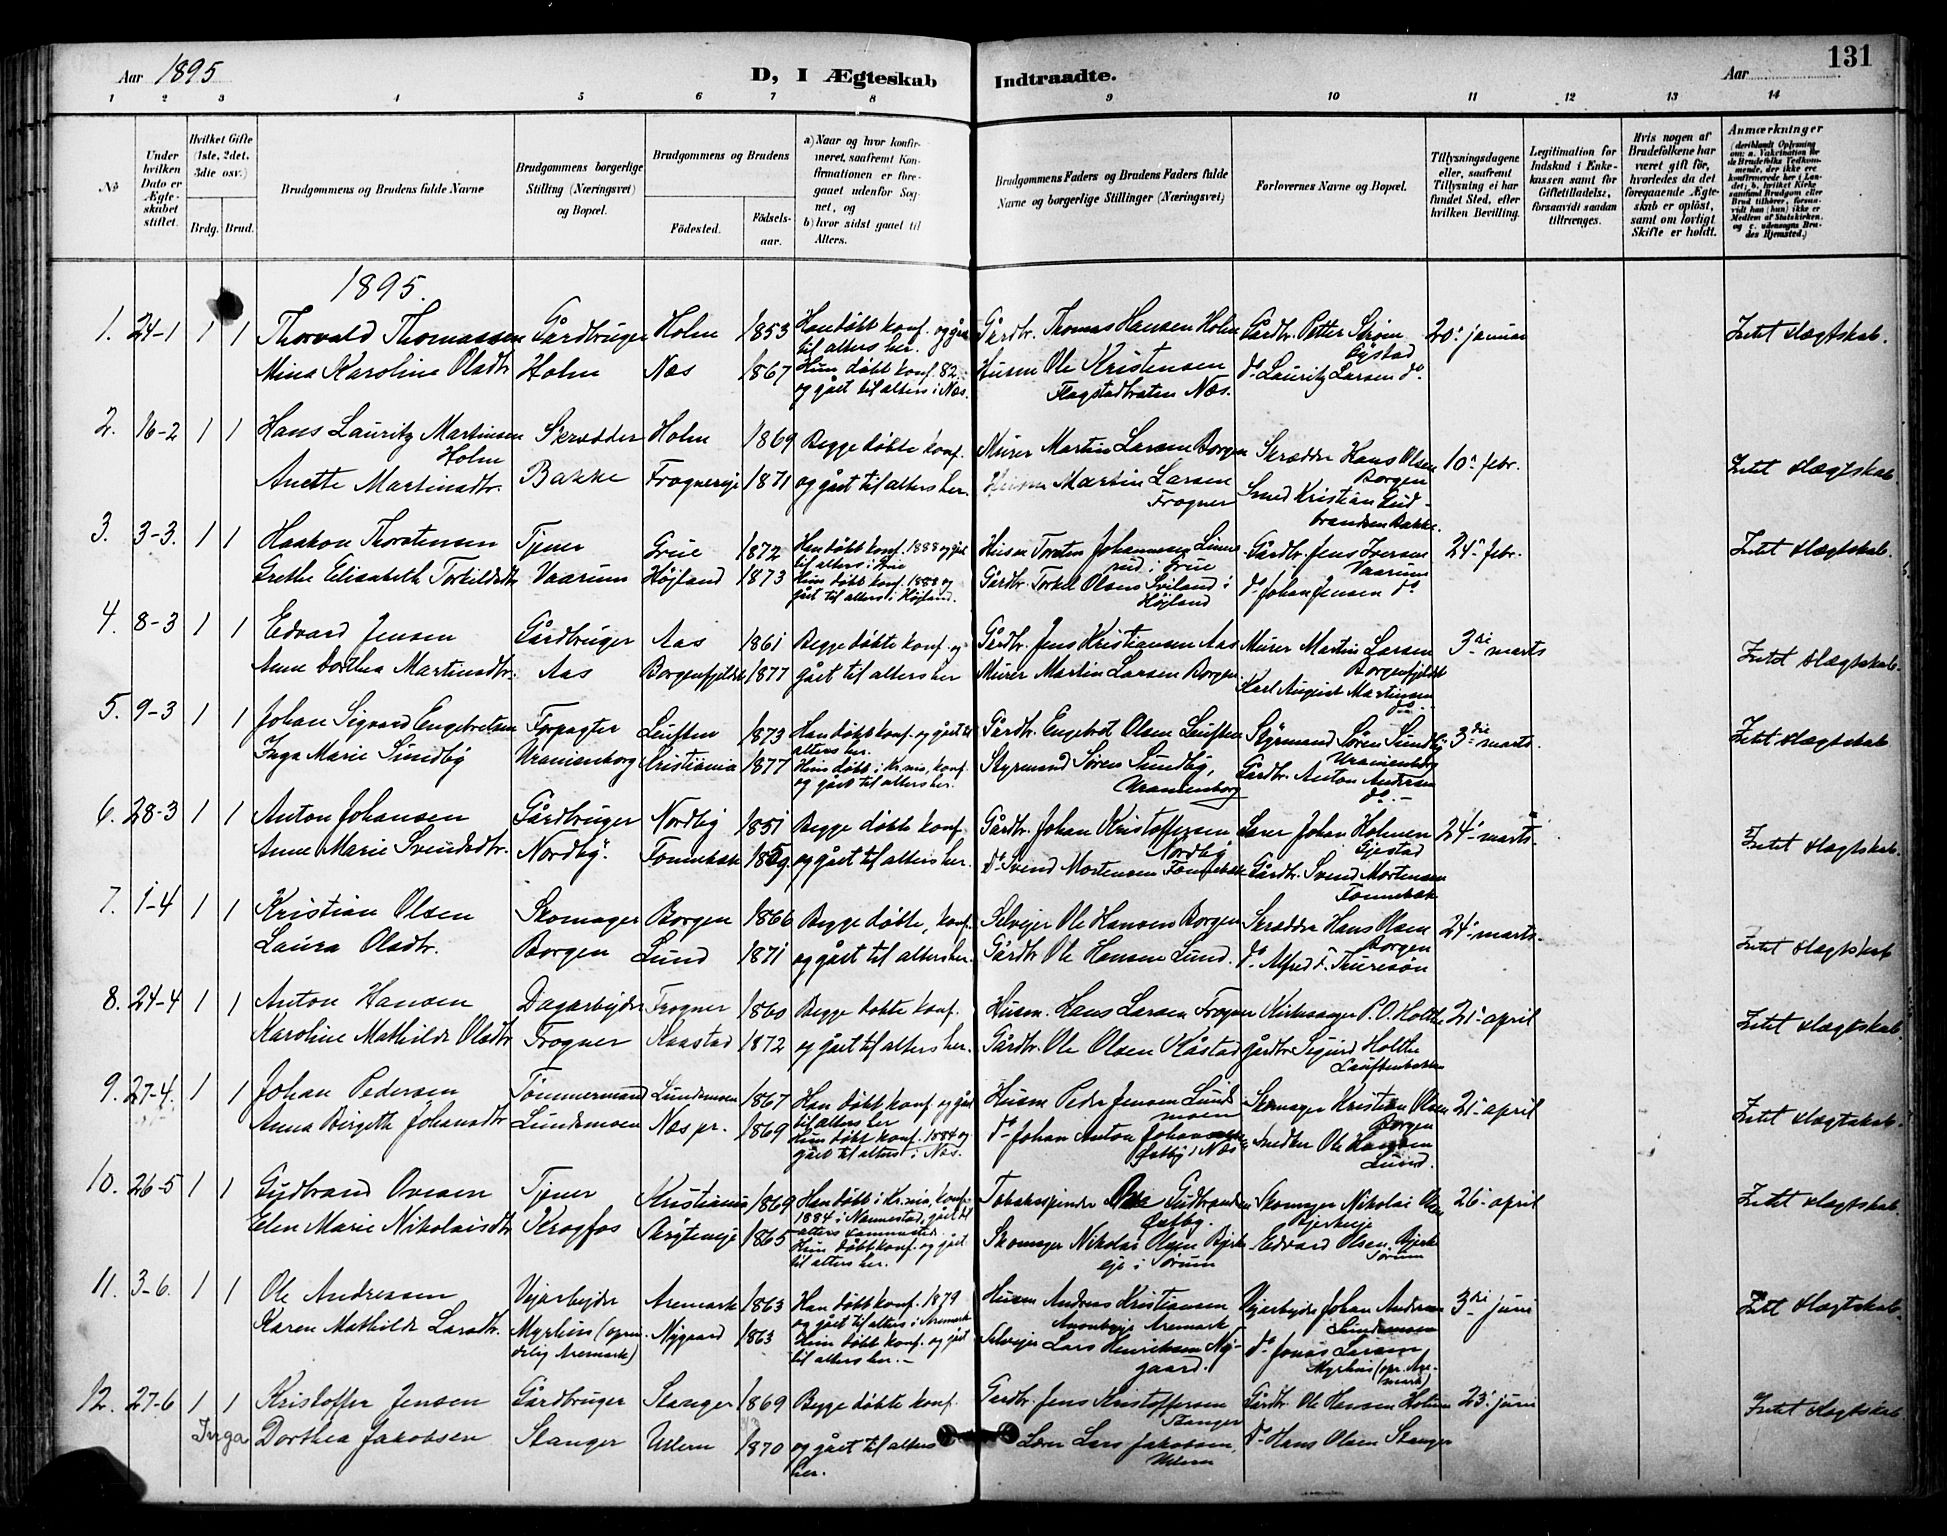 Aar 1895
D, I Ægteskab Indtraadte.
Aar
131
1 2 3 4 5 6 7 8 9 10 11 12 13 14
№
Under hvilken Dato er Ægteskabet stiftet.
Hvilket Gifte (1ste, 2det, 3die osv.)
Brdg. Brud.
Brudgommens og Brudens fulde Navne
Brudgommens borgerlige Stilling (Næringsvei) og Bopæl.
Brudgommens og Brudens
Fødested.
Fødselsaar.
a) Naar og hvor konfirmeret, saafremt Konfirmationen er foregaaet udenfor Sognet, og
b) hvor sidst gaaet til Alters.
Brudgommens Faders og Brudens Faders fulde Navne og borgerlige Stillinger (Næringsvei)
Forlovernes Navne og Bopæl.
Tillysningsdagene eller, saafremt Tillysning ei har fundet Sted, efter hvilken Bevilling.
Legitimation for Indskud i Enkekassen samt for Giftetilladelse, forsaavidt saadan tiltrænges.
Hvis nogen af Brudefolkene har været gift før, hvorledes da det foregaaende Ægteskab er opløst, samt om lovligt Skifte er holdt.
Anmærkninger (deriblandt Oplysning om: a. Vakcination for de Brudefolks Vedkommende, der ikke ere konfirmerede her i Landet; b. hvilket Kirkesamfund Brudgom eller Brud tilhører, forsaavidt han (hun) ikke er Medlem af Statskirken, og c. udensogns Brudes Hjemsted.)
1895.
1. 24-1 1 1 Thorvald Thomassen Gårdbruger Holm 1853 Han døbt konf. og gået til alters her. Gårdbr. Thomas Hansen Holm Gårdbr. Petter Strøm 20. januar Intet slægtskab.
Mina Karolina Olsdtr. Holm Næs 1867 Hun døbt konf. 82 og gået til alters i Næs. Husm Ole Kristensen Flagstadbraten Næs. do Lauritz Larsen do.
2. 16-2 1 1 Hans Lauritz Martinsen Holm Skrædder Holm 1869 Begge døbte konf. Murer Martin Larsen Borgen Skrædder Hans Olsen Borgen 10. febr. Intet slægtskab
Anette Martinsdtr. Bakke Frognereje 1871 og gået til alters her. Husm Martin Larsen Frogner Smed Kristian Gudbrandsen Bakke.
3. 3-3. 1 1 Haakon Thorstensen Tjener Grue 1872 Han døbt konf. 1888 og gået til alters i Grue Husm Torsten Johannesen i Grue Gårdbr. Jens Iversen Vaarum 24. febr. Intet slægtskab.
Grethe Elisabeth Torkildsdtr Vaarum Højland 1873 Hun døbt konf. 1888 og gået til alters i Højland. Gårdbr. Torkel Olsen Sviland i Højland do Johan Jensen do
4. 8-3 1 1 Edvard Jensen Gårdbruger Aas 1861 Begge døbte konf. og Gårdbr. Jens Kristiansen Aas Murer Martin Larsen Borgenfjeldet 3die marts Intet slægtskab
Anne Dorthea Martinsdtr. Aas Borgenfjeldet 1877 gået til alters her Murer Martin Larsen Borgen. Karl August Martinsen do.
5. 9-3 1 1 Johan Sigvard Engebretsen Forpagter Leuften 1873 Han døbt konf. og gået til alters her. Gårdbr. Engebret Olsen Leuften Styrmand Søren Sundby Uranienborg 3die marts. Intet slægtskab
Inga Marie Sundby Uranienborg Kristiania 1877 Hun døbt i Kr.nia, konf. og gået til alters her. Styrmand Søren Sundby, Uranienborg Gårdbr. Anton Andersen do.
6. 28-3 1 1 Anton Johansen Gårdbruger Nordby 1851 Begge døbte konf. Gårdbr. Johan Kristoffersen Nordby Johan Holmen Gjestad 24. marts. Intet slægtskab.
Anne Marie Svendsdtr. Nordby. Tonnebæk 1859. og gået til alters her. do Svend Mortensen Tonnebæk Gårdbr. Svend Mortensen Tonnebæk
7. 1-4 1 1 Kristian Olsen Skomager Borgen 1866 Begge døbte, konf. Selvejer Ole Hansen Borgen Skrædder Hans Olsen Borgen 24. marts. Intet slægtskab
Laura Olsdtr. Borgen Lund 1871 og gået til alters her. Gårdbr. Ole Hansen Lund. do Alfred F. Thuresøn
8. 24-4 1 1 Anton Hansen Dagarbejder Frogner 1860 Begge døbte konf. Husm. Hans Larsen Frogner Kirkesanger P. O. Holthe 21. april Intet slægtskab.
Karoline Mathilde Olsdtr. Frogner Kaastad 1872 og gået til alters her. Gårdbr. Ole Olsen Kåstad gårdbr. Sigurd Holthe Leuftenbakken
9. 27-4. 1 1 Johan Pedersen Tømmermand Lundemoen 1867 Han døbt konf. og gået til alters her Husm Peder Jensen Lundemoen Skomager Kristian Olsen Borgen 21. april Intet slægtskab.
Anna Birgethe Johansdtr Lundemoen Næs pr. 1869 Hun døbt konf. 1884 og gået til alters i Næs. do Johan Anton Johannesen Østby i Næs Snedker Ole Hansen Lund.
10. 26-5 1 1 Gudbrand Ovesen Tjener Kristiania 1869 Han døbt i Kr.nia, konf. 1884 i Nannestad, gået til alters sammesteds. Tobaksspinder Ove Gudbrandsen Østby. Skomager Nikolai Olsen Bjerkeeje 26. april Intet slægtskab.
Elen Marie Nikolaisdtr Krogfos Skøyteneje 1865 Hun døbt konf. og gået til alters her. Skomager Nikolai Olsen Bjerkeeje i Sørum Edvard Olsen Bjerke Sørum
11. 3-6. 1 1 Ole Andressen Vejarbejder Aremark 1863 Han døbt konf. 1879 og gået til alters i Aremark Husm Andreas Kristiansen Aremark Vejarbejder Johan Andersen Lundemoen 3die juni Intet slægtskab.
Karen Mathilde Larsdtr. Myrhus (oprindelig Aremark) Nygaard 1863 Hun døbt konf. og gået til alters her.- Selvejer Lars Henriksen Nygaard. do Jonas Larsen Myrhus (opr. Aremark)
12. 27-6 1 1 Kristoffer Jensen Gårdbruger Stanger 1869 Begge døbte konf. Gårdbr. Jens Kristoffersen Stanger Gårdbr. Ole Hansen Holm 23. juni Intet slægtskab.
Inga Dorthea Jakobsen Stanger Uslem 1870 og gået til alters her. Lars Jakobsen, Uslem do Hans Olsen Stanger